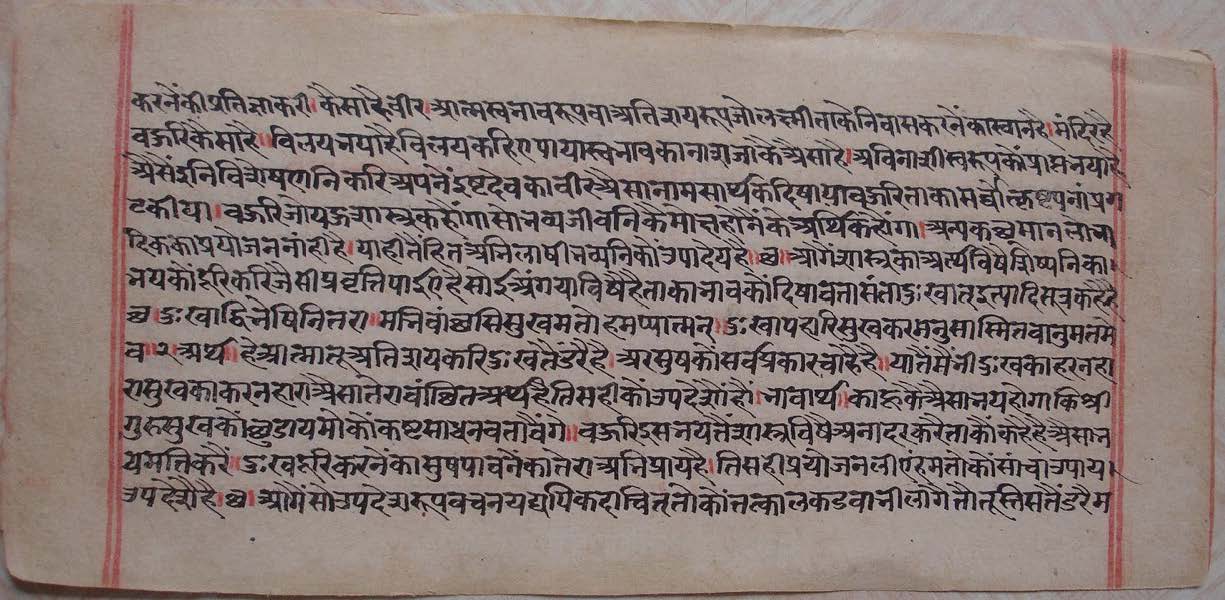 करनेंकी प्रतिज्ञा करी। कैसा है वीर। आत्मस्वभावरूप वा अतिशयरूप जो लक्ष्मी ताकै निवास करनेंका स्थान है। मंदिर है
बहुरि कैसा है। विलय नया है विलय करि पाया स्वभाव का नाश जाकै अैसा है। अविनाशी स्वरूपकों प्राप्त भया है
अैसें इनि विशेषणनि करि अपनें इष्टदेव का वीर अैसा नाम सार्थक दिषाया बहुरि ताका सर्वोत्कृष्टपनां प्रग
ट कीया। बहुरि जो यहु शास्त्र कहौंगा सो भव्य जीवनिकै मोक्ष होनेंकै अर्थि कहौंगा। अन्य कछु मान लोभा
दिकका प्रयोजन नांही है। याही तैं हित अभिलाषी भव्यनिकों उपादेय है।१। आगैं शास्त्रका अर्थविषै शिष्यनिका
भयकों दूरि करि जैसी प्रवृत्ति पाईए है सोई अंग या विषै है ताका भावकों दिषावता संता दुःखात् इत्यादि सूत्र कहै है
छ दुःखाद्विभेषि नितरा। मभिवांछसि सुखमतोहमप्यात्मन् दुःखापहारि सुखकरमनुशास्मि तवानुमतमे
व २ अर्थ हे आत्मा तू अतिशय करि दुःखतैं डरै है। अर सुषकों सर्व प्रकार चाहै है। यातैं मैं भी दुःखका हरनहा
रा सुखका करनहारा अैसा तेरा वांछित अर्थ है तिसहीकों उपदेशों हौं। भावार्थ। काहूकै अैसा भय होगा कि श्री
गुरु सुखकों छुडाय मोकों कष्ट साधन बतावैंगे। बहुरि इस भयतैं शास्त्रविषै अनादर करै ताकों कहै हैं अैसा भ
य मति करै दुःख दूरि करनेंका सुष पावनेका तेरा अभिप्राय है। तिसही प्रयोजन लीएं हम तोकों सांचा उपाय
उपदेशै है। छ। आगैं सो उपदेशरूप वचन यद्यपि कदाचित् तोकों तत्काल कडवा भी लागै तौ तू तिसतैं डरै म